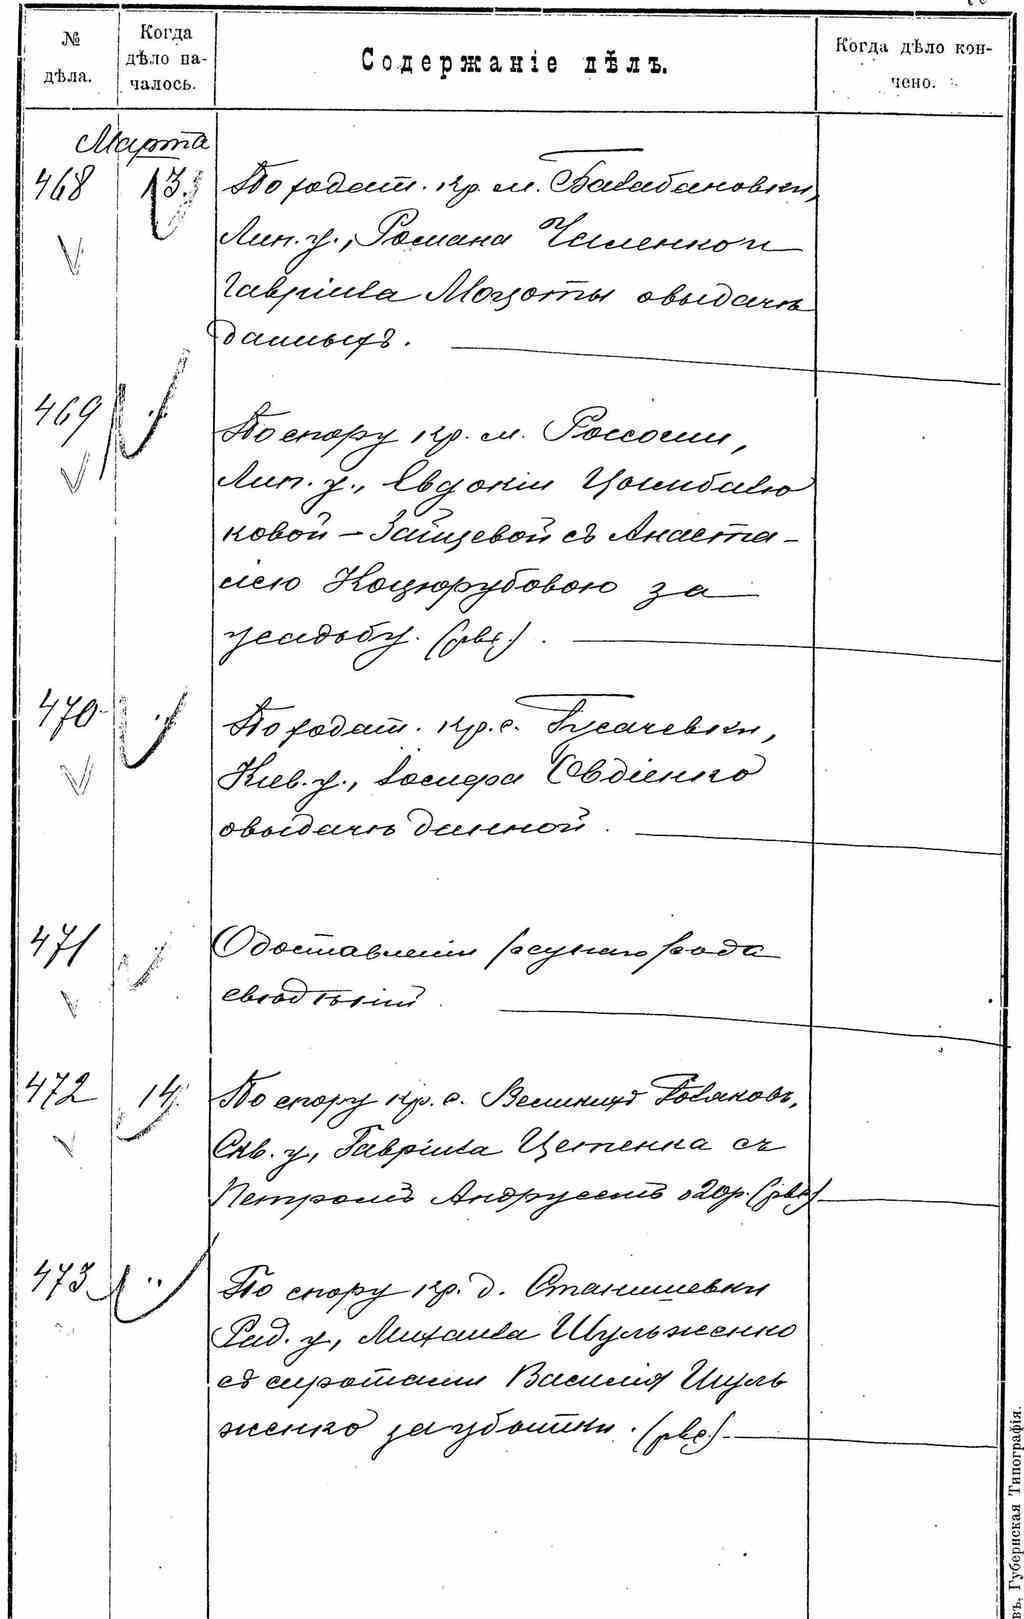 № дѣла.
Когда дѣло на-
чалось.
Содержаніе дѣлъ.
Когда дѣло кон-
чено.
Марта
468 13. По ходат. кр. м. Балабановки,
Лип. у., Романа Чиленко и
Гавріила Моцоты о выдачѣ
данныхъ.
469 " По спору кр. м. Россоши,
Лип. у., Евдокіи Цымбалю
ковой – Зайцевой съ Анаста-
сіею Коцюрубовою за
усадьбу. (рвс.).
470 " По ходат. кр. с. Гусачевки,
Кіев. у., Іосифа Овдіенко
о выдачѣ данной.
471 " О доставленіи разнаго рода
свѣдѣній.
472 14. По спору кр. с. Великихъ Половъ,
Скв. у., Гавріила Цепенка съ
Петромъ Андрусемъ о 20 р. (рвс)
473 " По спору кр. д. Станишевки
Рад. у., Михаила Шульженко
съ сиротами Василія Шуль
женко за убытки. (рвс.)
въ, Губернская Типографія.